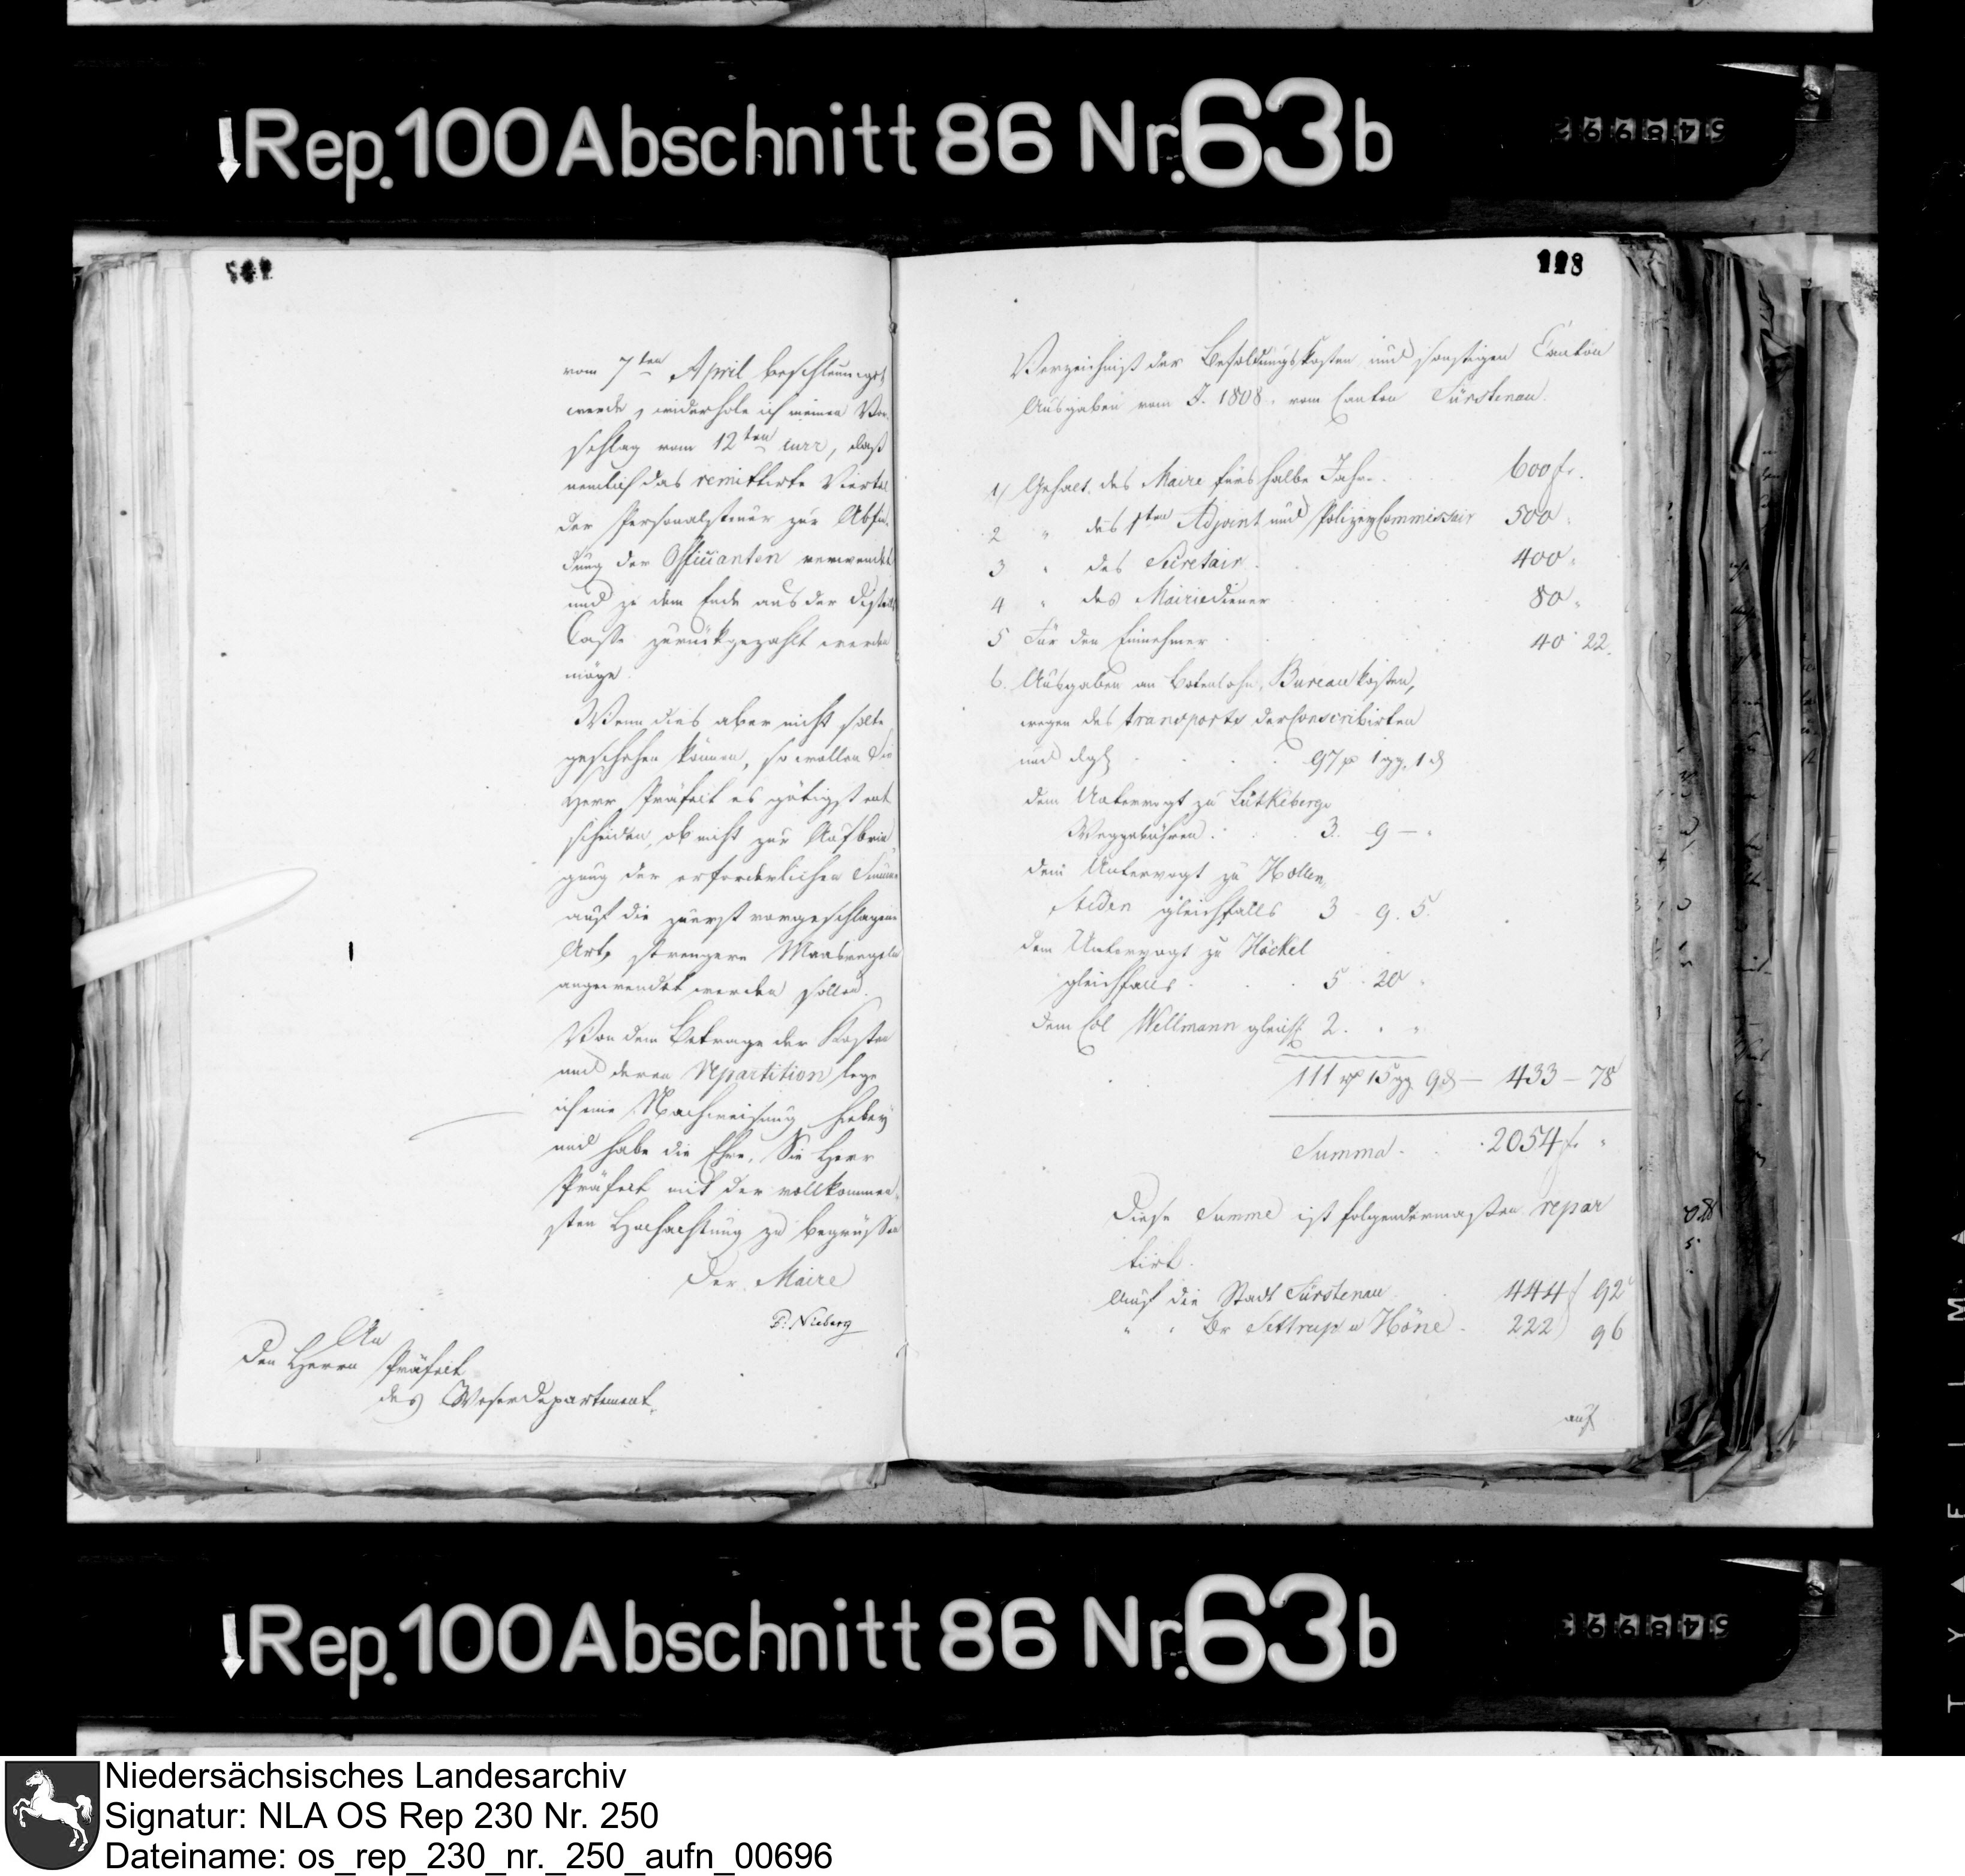 ↓Rep.100 Abschnitt 86 Nr.63b
vom 7ten April beschleuniget
werde, widerhole ich meinen Vor
schlag vom 12ten curr, daß
nemlich das remittirte Viertel
der Personalsteuer zur Abfin
dung der Officianten verwendet
und zu dem Ende aus der Distrikts
Casse zurückgezahlt werden
möge.
Wenn dies aber nicht solte
geschehen können, so wollen Sie
Herr Präfect es gütigst ent
scheiden, ob nicht zur Aufbrin
gung der erforderlichen Summe
auf die zuerst vorgeschlagene
Art, strengere Maasregeln
angewendet werden sollen.
Von dem Betrage der Kosten
und deren Repartition lege
ich eine Nachweisung hiebey
und habe die Ehre, Sie Herr
Präfect mit der vollkommen
sten Hochachtung zu begrüssen
Der Maire
F. Nieberg
An
den Herrn Präfect
des Weserdepartement.
118
Verzeichniß der Besoldungskosten und sonstigen Canton
Ausgaben vom J. 1808. vom Canton Fürstenau.
1/ Gehalt des Maire fürs halbe Jahr. 600 fr.
2 " des 1ten Adjoint und Polizey Commissair 500
3 " des Secretair 400 "
4 " des Mairiediener 80 "
5 Für den Einnehmer 40 22.
6. Ausgaben an Botenlohn, Bureaukosten,
wegen des transports der Conscribirten
und dgl. 97 rp 1 gg. 1 d
dem Untervogt zu Lütkeberge
Weggebühren. 3. 9 —
dem Untervogt zu Hollen
steden gleichfalls 3 9. 5.
dem Untervogt zu Höckel
gleichfalls 5 20 "
dem Col Wellmann gleichf. 2. " "
111 rp 15 gg 9 d — 433 — 78
Summa. 2054 fr. "
Diese Summe ist folgendermaßen repar
tirt.
Auf die Stadt Fürstenau 444 f 92
" " Br Settrup u Höne 222 96
auf
↓Rep.100 Abschnitt 86 Nr.63b
Niedersächsisches Landesarchiv
Signatur: NLA OS Rep 230 Nr. 250
Dateiname: os_rep_230_nr._250_aufn_00696